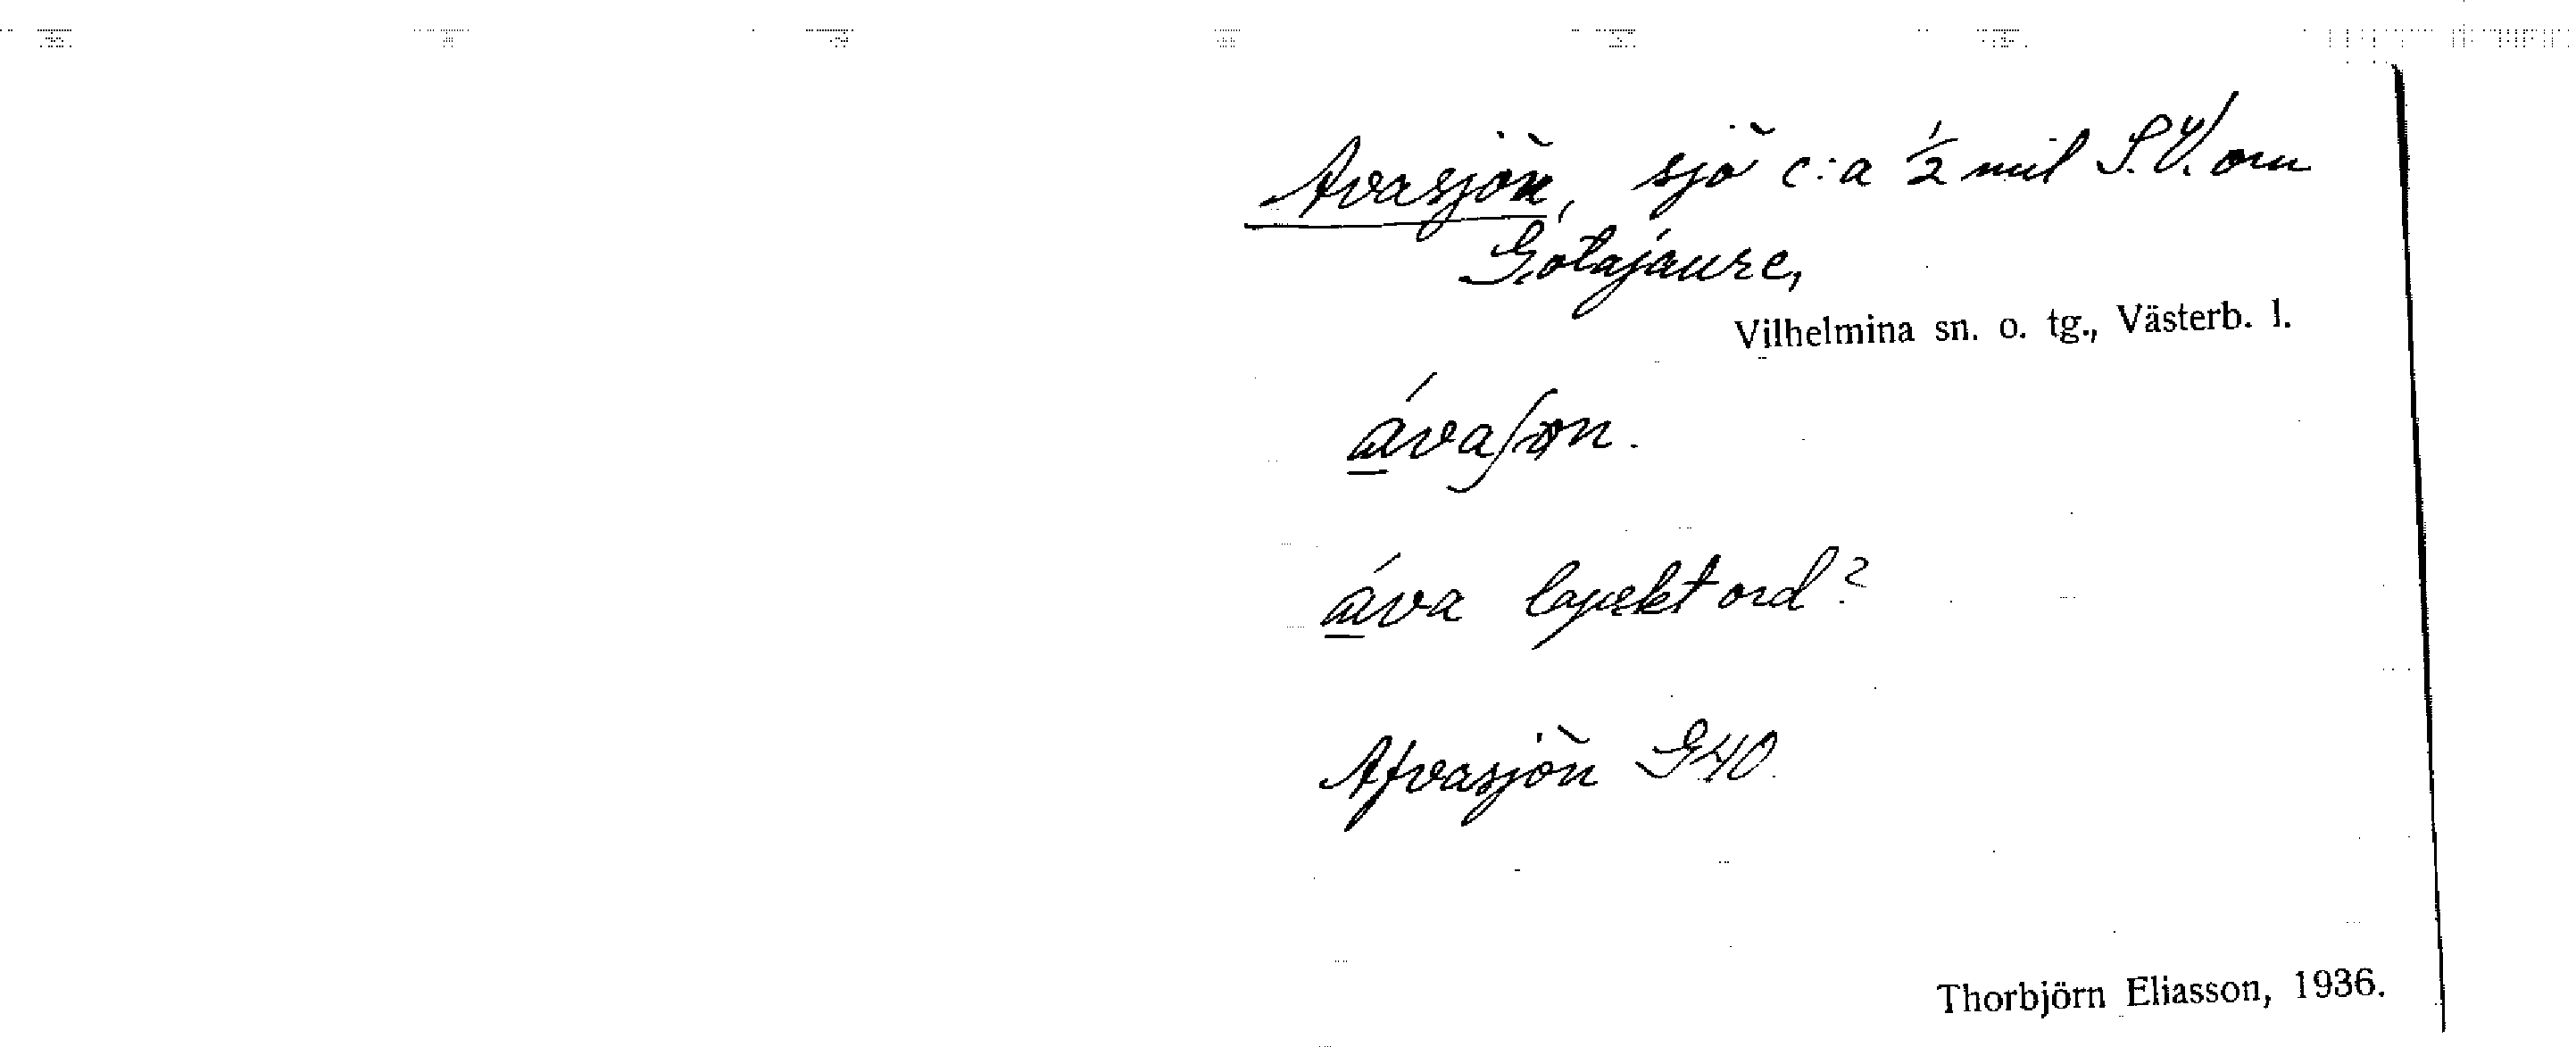 Avasjön, sjö c:a ½ mil S.V. om
Götajaure,
Vilhelmina sn. o. tg., Västerb. l.
ávaʃøn.
áva lapskt ord?
Afvasjön G40.
Thorbjörn Eliasson, 1936.